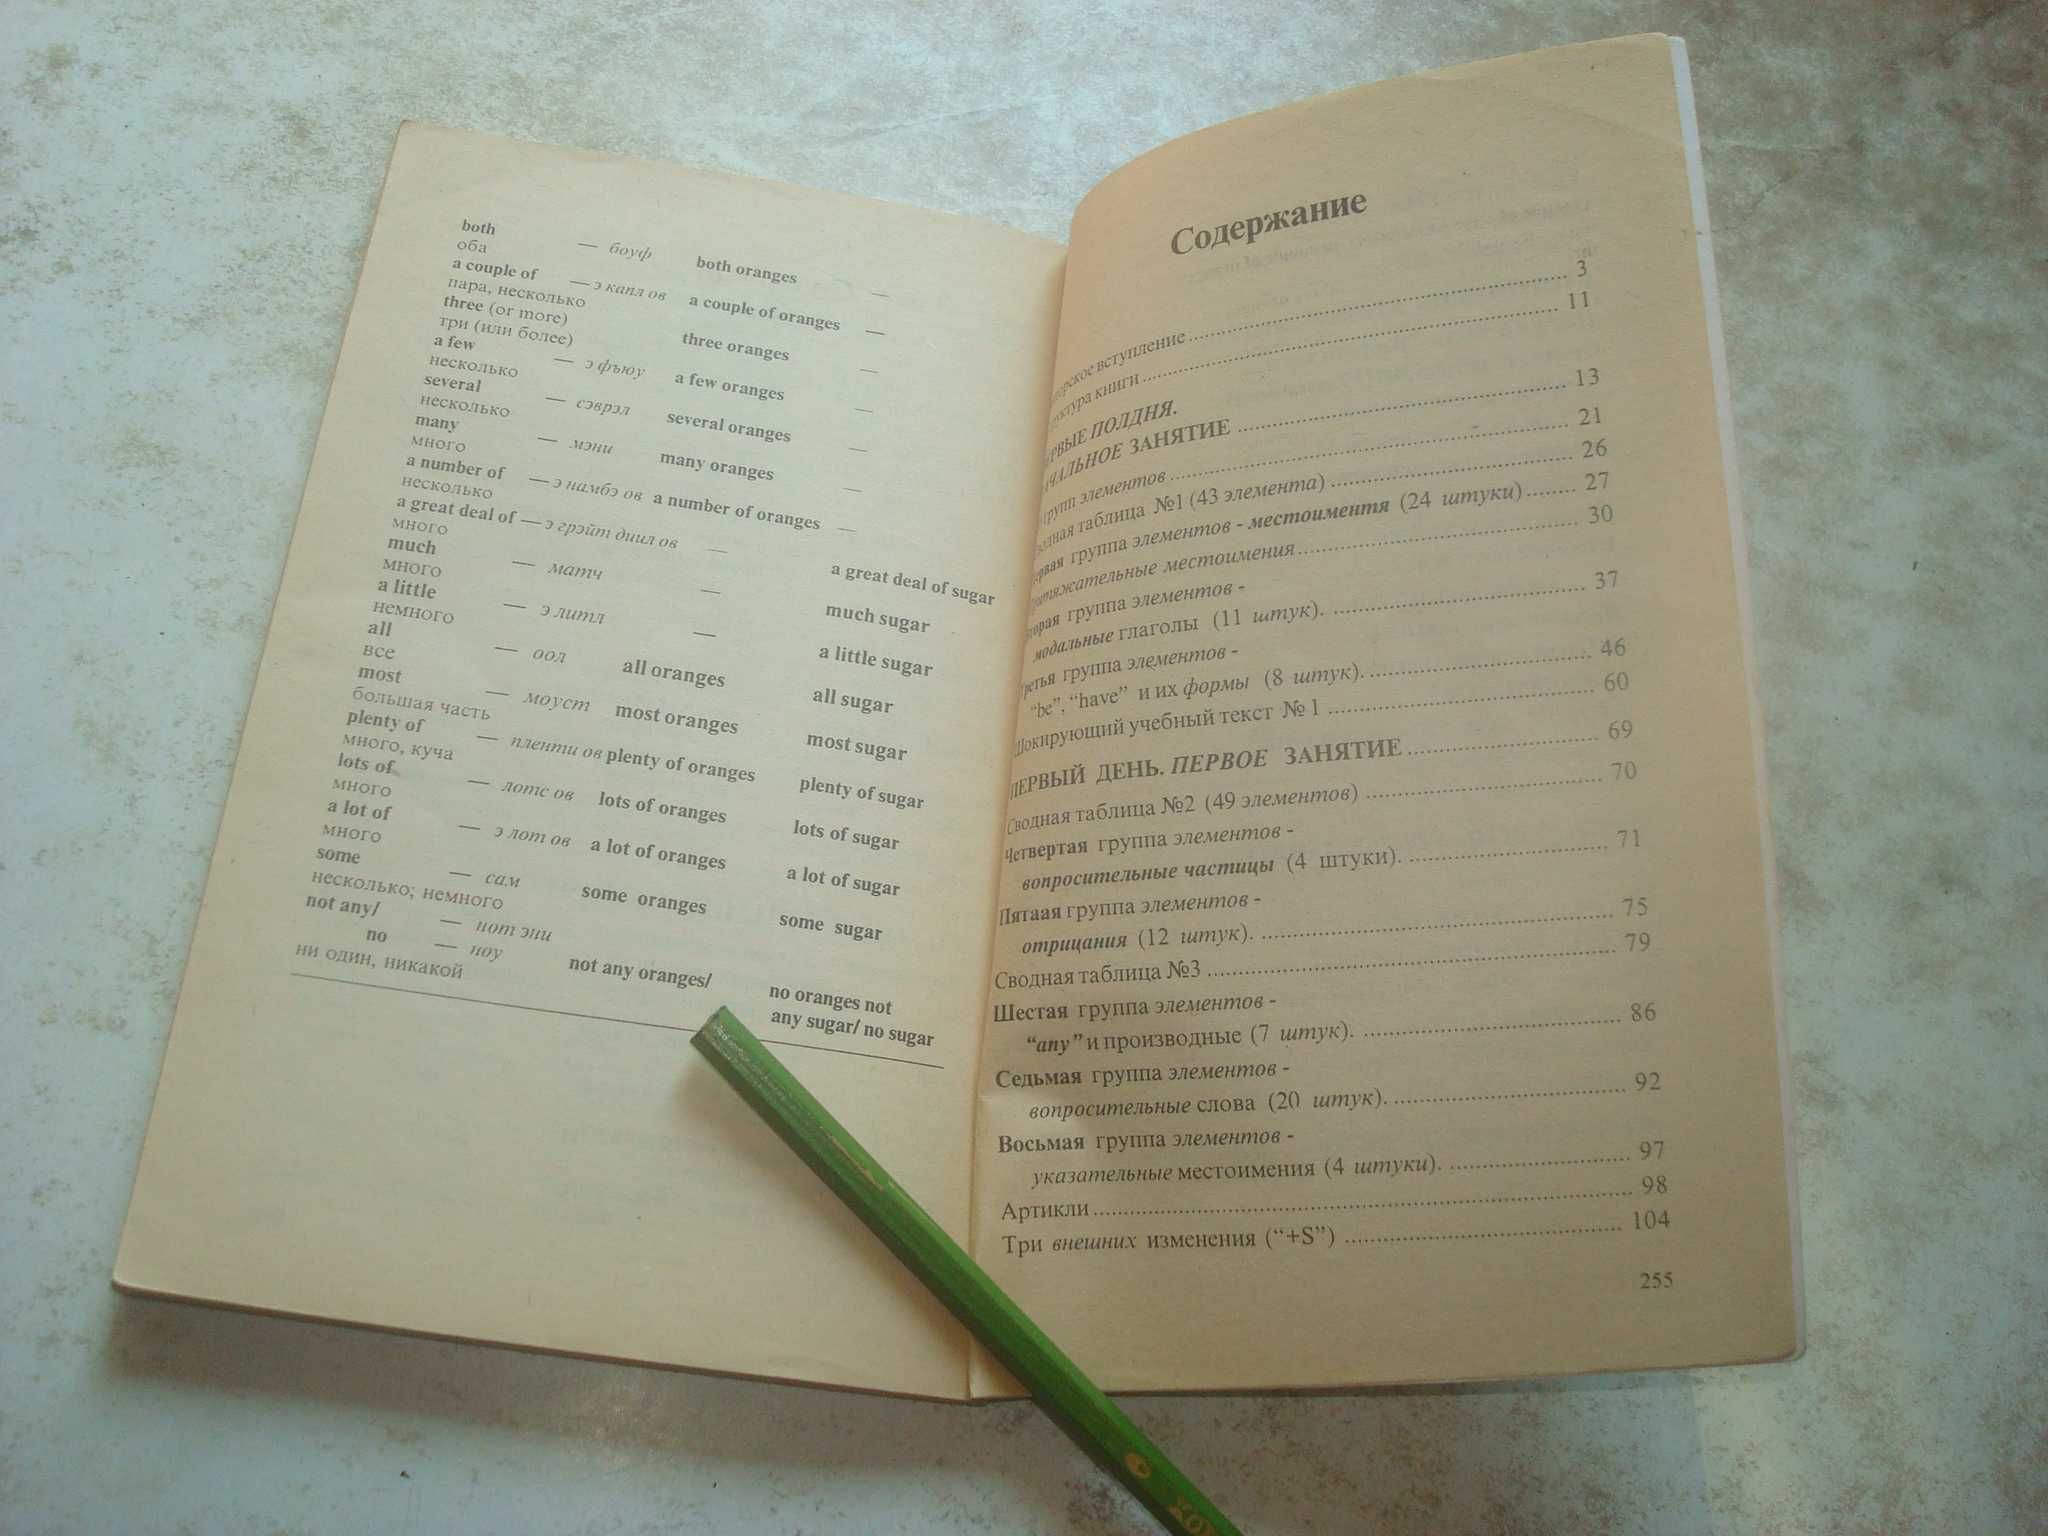 both — боуф both oranges —
оба
a couple of — э капл ов a couple of oranges —
пара, несколько
three (or more) three oranges —
три (или более)
a few — э фъюу a few oranges —
несколько
several — сэврэл several oranges —
несколько
many — мэни many oranges —
много
a number of — э намбэ ов a number of oranges —
несколько
a great deal of — э грэйт диил ов — a great deal of sugar
много
much — матч — much sugar
много
a little — э литл — a little sugar
немного
all — оол all oranges all sugar
все
most — моуст most oranges most sugar
большая часть
plenty of — пленти ов plenty of oranges plenty of sugar
много, куча
lots of — лотс ов lots of oranges lots of sugar
много
a lot of — э лот ов a lot of oranges a lot of sugar
много
some — сам some oranges some sugar
несколько; немного
not any/ — нот эни not any oranges/ no oranges not
no — ноу any sugar/ no sugar
ни один, никакой
Содержание
вступление ........ 3
книги ........ 11
ПОЛДНЯ.
ЗАНЯТИЕ ........ 13
групп элементов ........ 21
таблица №1 (43 элемента) ........ 26
группа элементов - местоиментя (24 штуки) ........ 27
местоимения ........ 30
группа элементов -
модальные глаголы (11 штук). ........ 37
группа элементов -
“be”, “have” и их формы (8 штук). ........ 46
Шокирующий учебный текст № 1 ........ 60
ПЕРВЫЙ ДЕНЬ. ПЕРВОЕ ЗАНЯТИЕ ........ 69
Сводная таблица №2 (49 элементов) ........ 70
Четвертая группа элементов -
вопросительные частицы (4 штуки). ........ 71
Пятаая группа элементов -
отрицания (12 штук). ........ 75
Сводная таблица №3 ........ 79
Шестая группа элементов -
“any” и производные (7 штук). ........ 86
Седьмая группа элементов -
вопросительные слова (20 штук). ........ 92
Восьмая группа элементов -
указательные местоимения (4 штуки). ........ 97
Артикли ........ 98
Три внешних изменения (“+S”) ........ 104
255